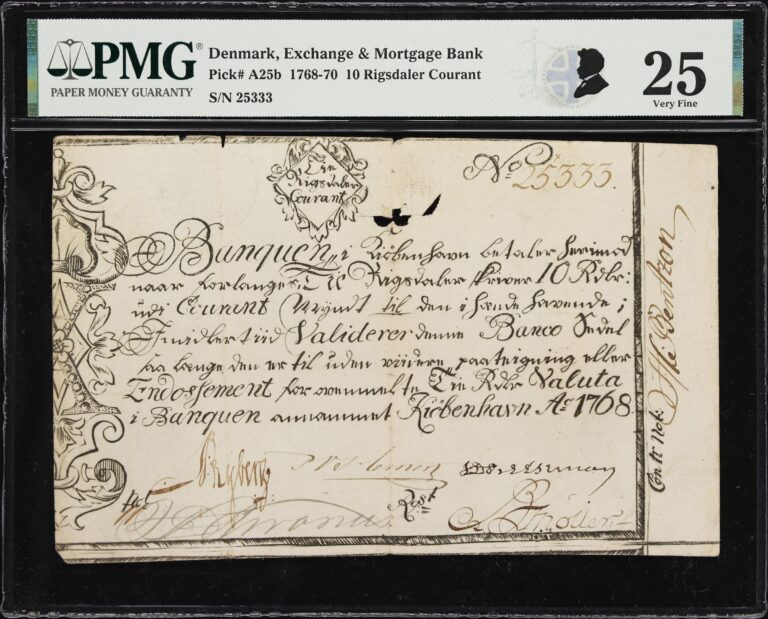 PMG®
PAPER MONEY GUARANTY
Denmark, Exchange & Mortgage Bank
Pick# A25b 1768-70 10 Rigsdaler Courant
S/N 25333
25
Very Fine
Tie
Rigsdaler
Courant
No 25333.
Banquen i Kiøbenhavn betaler herimod
naar forlanges, Tie Rigsdaler skriver 10 Rdlr:
udi Courant Mÿndt til den i hænde havende;
Imidlertiid Validerer denne Banco Sedel
saa længe den er til uden viidere paateigning eller
Endossement for ovenmelte Tie Rdlr Valuta
i Banquen annammet Kiøbenhavn Ao 1768
Ryberg